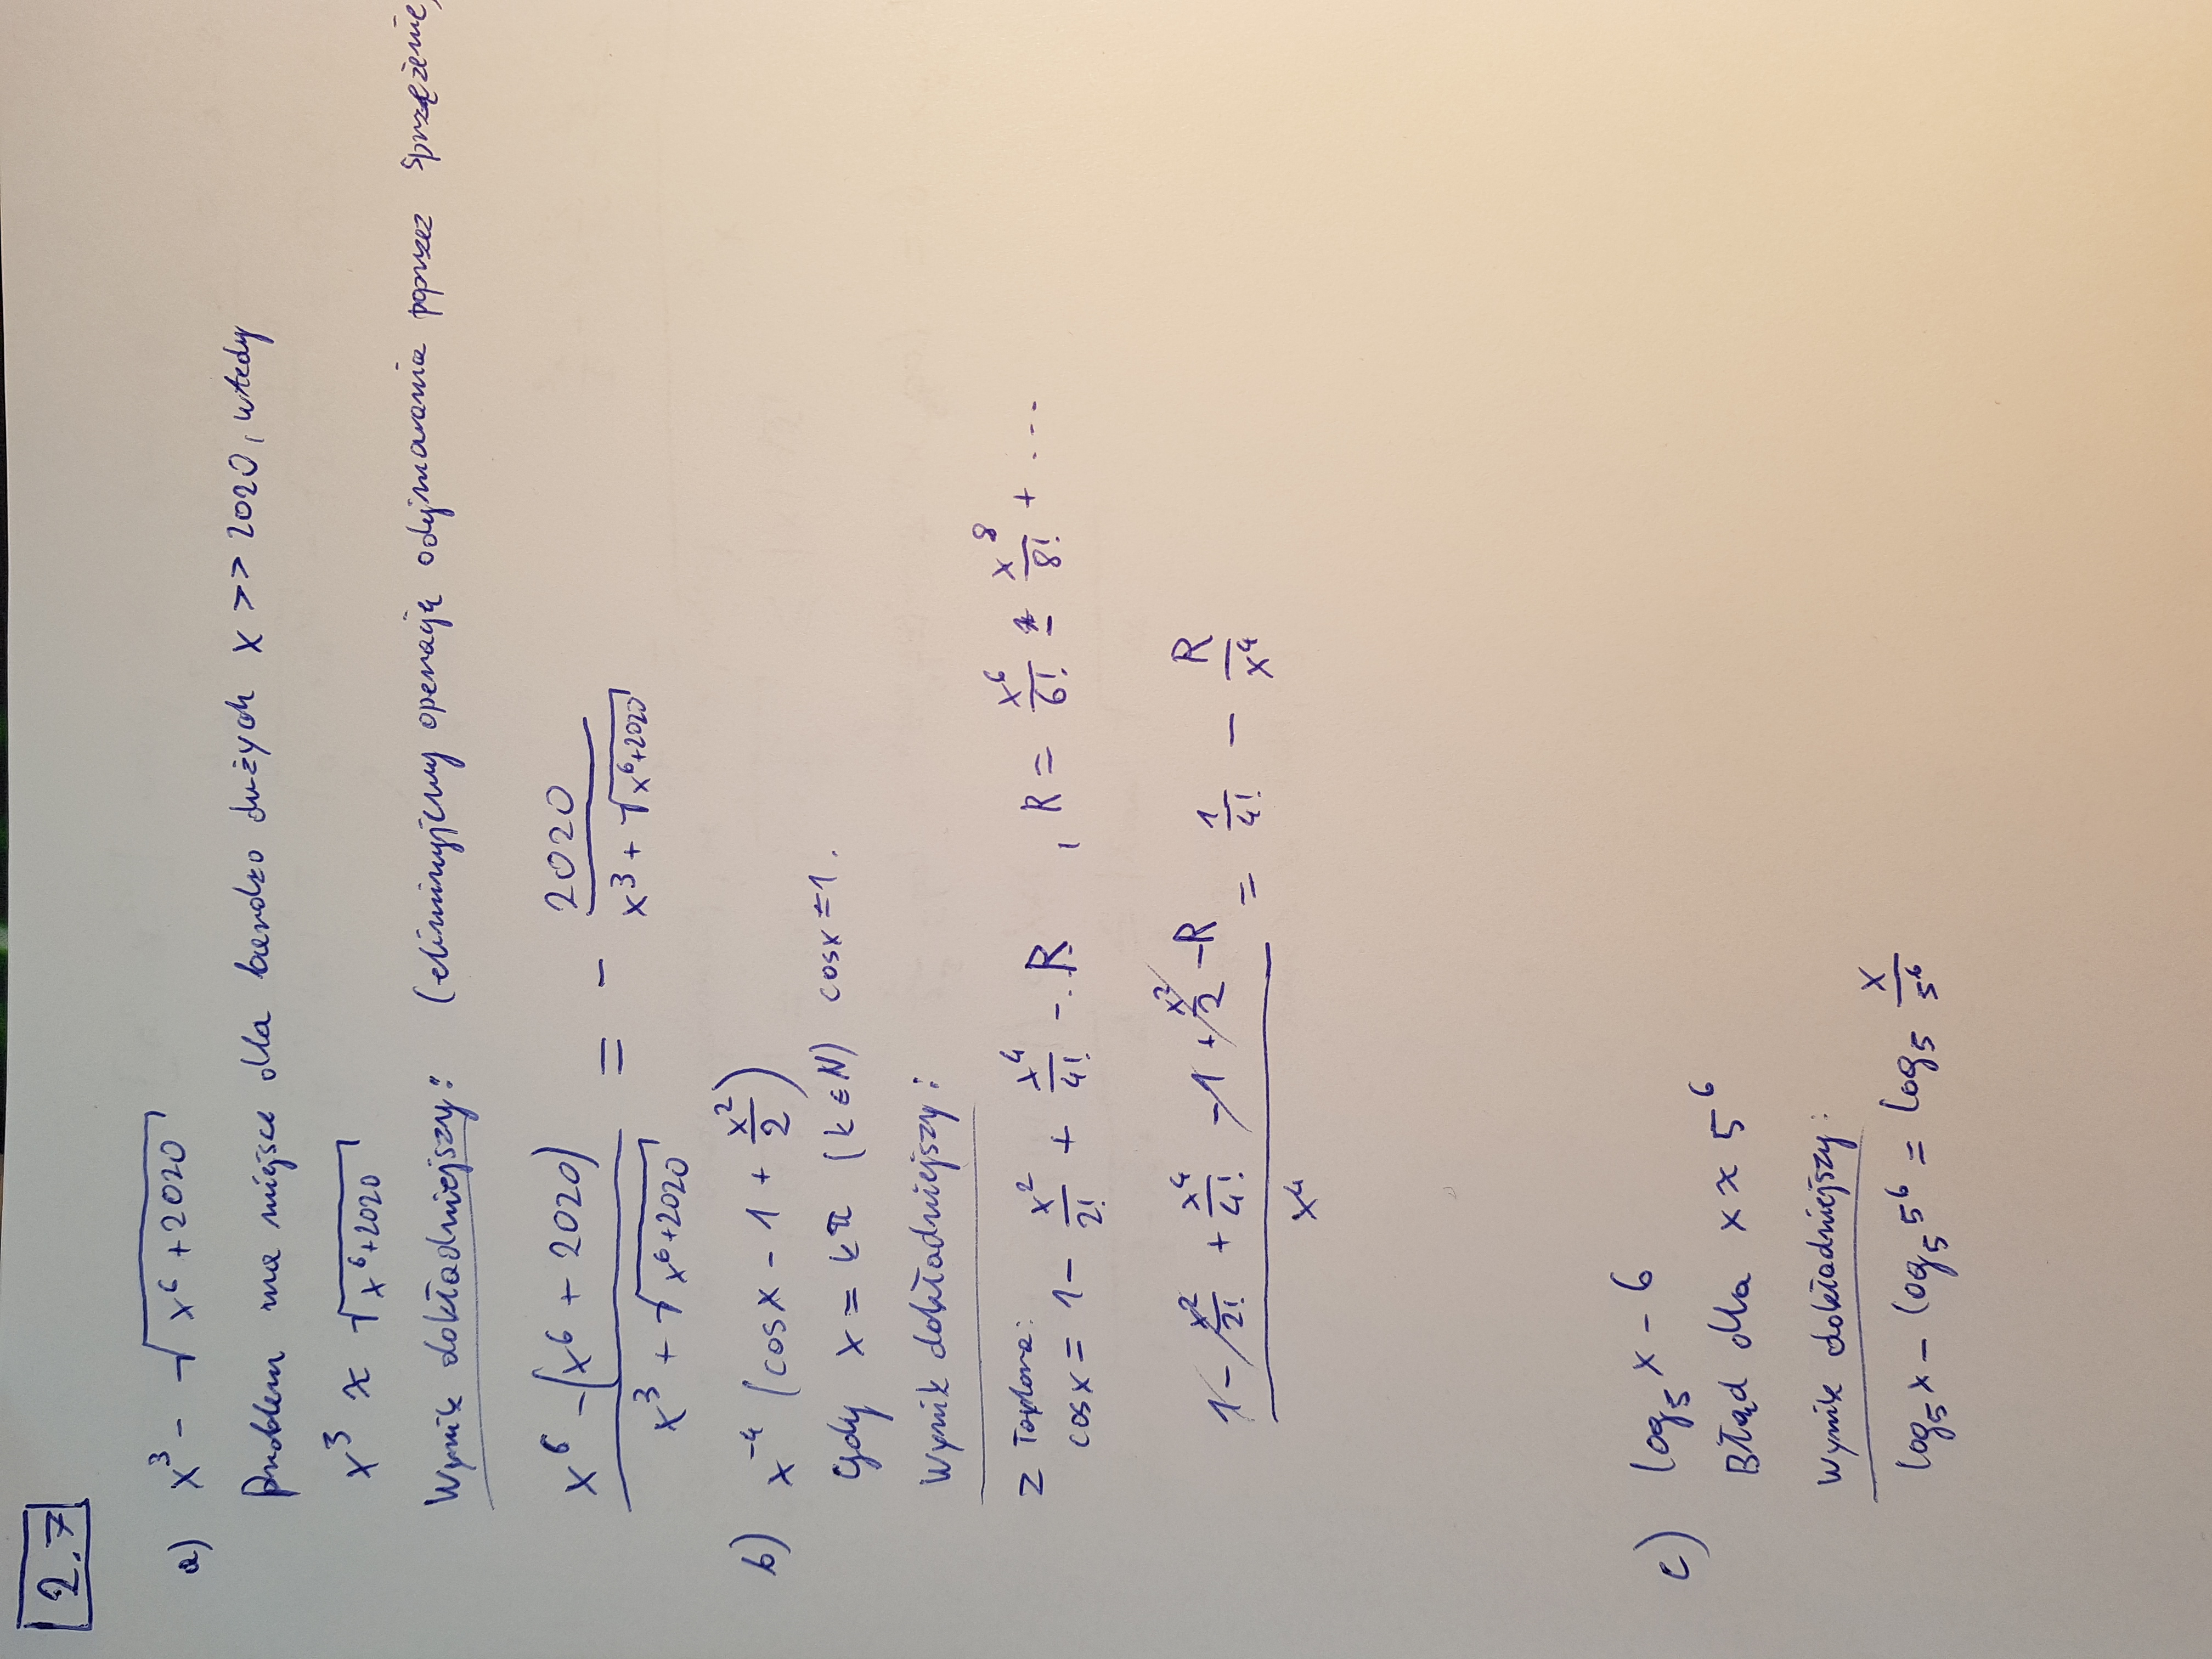 2.7
a) x³ - √(x⁶ + 2020)
Problem ma miejsce dla bardzo dużych x >> 2020, wtedy
x³ ≈ √(x⁶+2020)
Wynik dokładniejszy: (eliminujemy operację odejmowania poprzez sprzężenie)
(x⁶ - (x⁶ + 2020)) / (x³ + √(x⁶+2020)) = - 2020 / (x³ + √(x⁶+2020))
b) x⁻⁴ (cosx - 1 + x²/2)
Gdy x = kπ (k ∈ N) cosx = 1.
Wynik dokładniejszy:
Z Taylora:
cosx = 1 - x²/2! + x⁴/4! - R , R = x⁶/6! - x⁸/8! + ...
(1 - x²/2! + x⁴/4! - 1 + x²/2 - R) / x⁴ = 1/4! - R/x⁴
c) log₅x - 6
Błąd dla x ≈ 5⁶
Wynik dokładniejszy:
log₅x - log₅5⁶ = log₅ x/5⁶